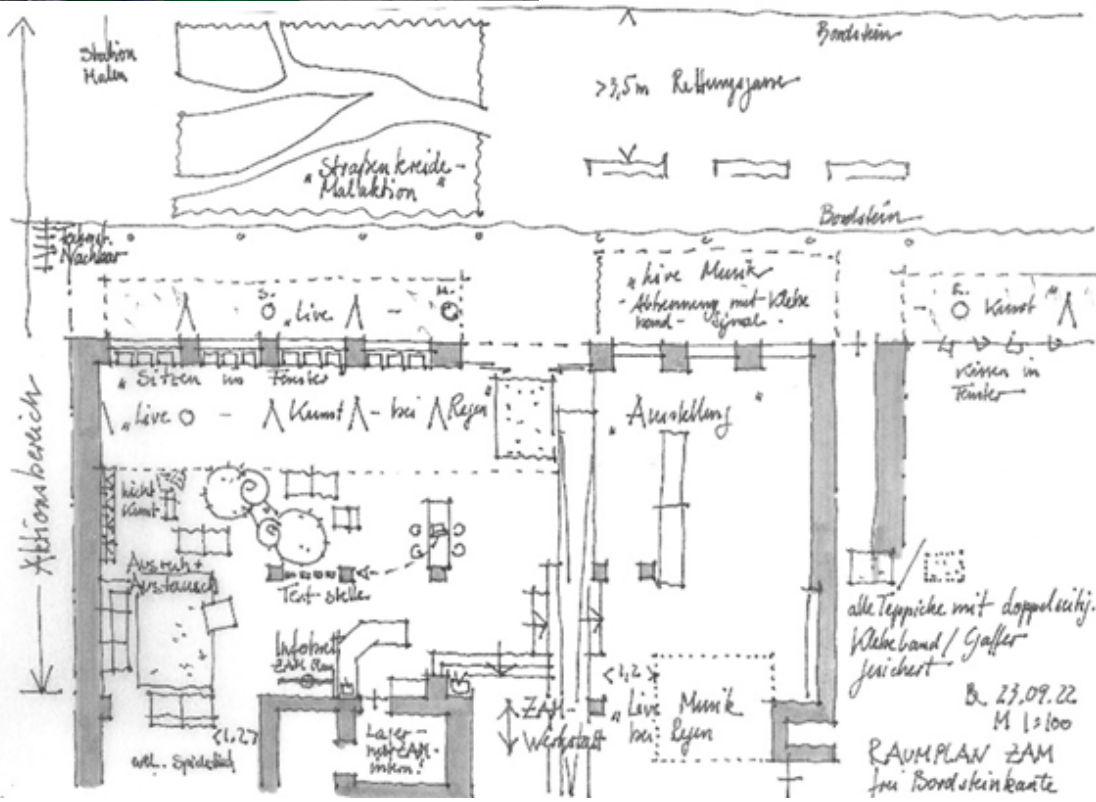 Station
Malen
Bordstein
>3,5m Rettungsgasse
"Straßenkreide-
Malaktion"
Bordstein
Nachbar
"Live Musik
- Abtrennung mit Klebe
band-Signal.
S.
M.
"Live -
K.
Kunst "
Kissen in
Fenster
"Sitzen im Fenster"
"Live - Kunst - bei Regen"
"Ausstellung"
Aktionsbereich
nicht
Kunst
Ausruh+
Austausch
Textsteller
ZAM Plan
<1,2>
<1,2>
Lager-
nur ZAM-
intern!
ZAM-
Werkstatt
"Live Musik
bei Regen
alle Teppiche mit doppelseitig.
Klebeband/Gaffer
gesichert
23.09.22
M 1:100
RAUMPLAN ZAM
frei Bordsteinkante